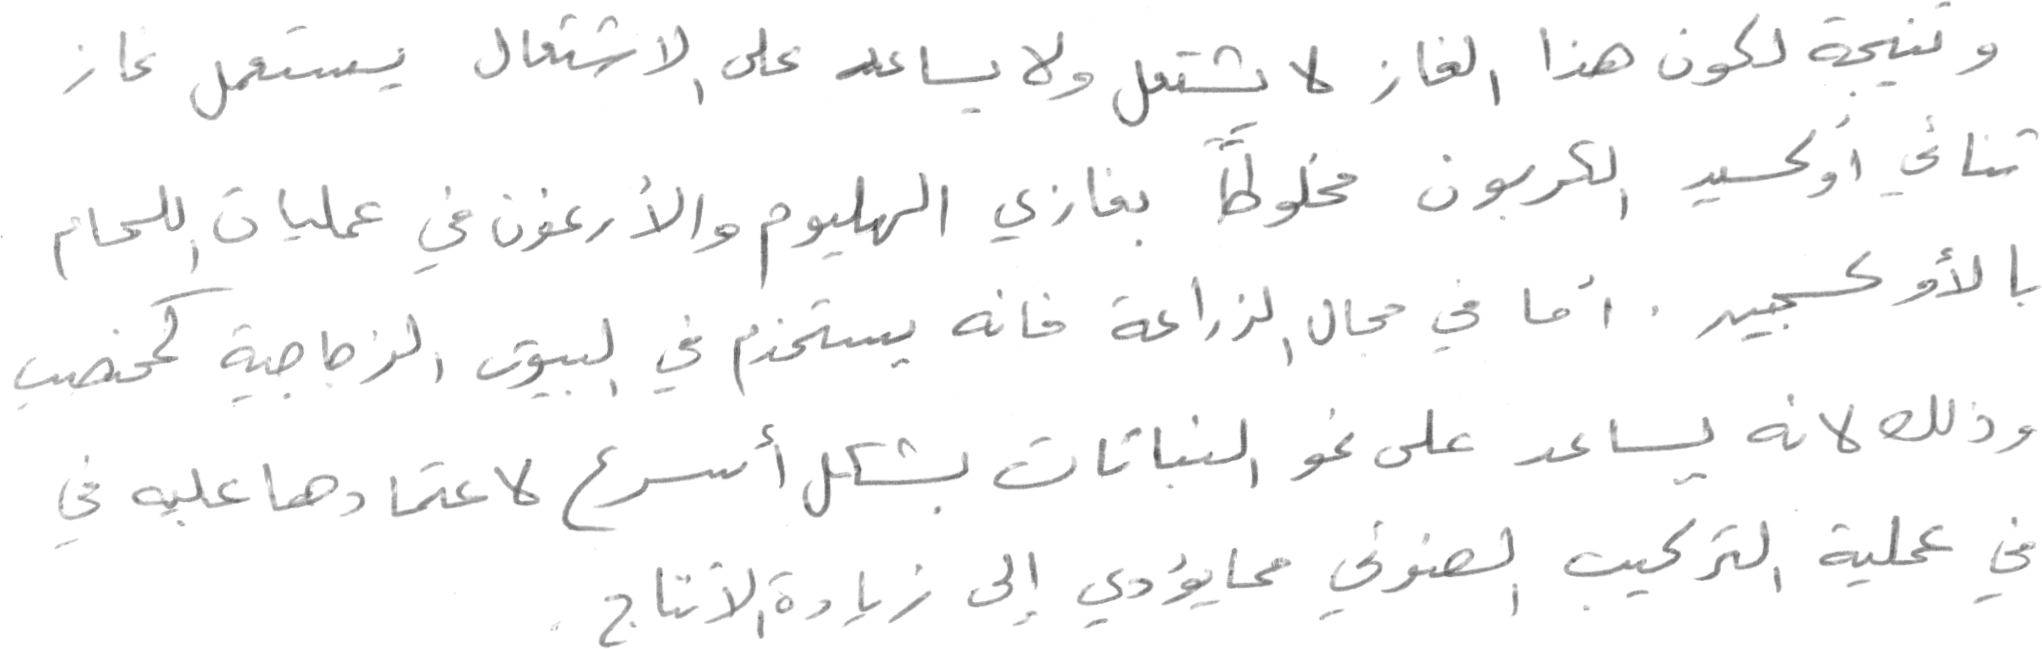 ونتيجة لكون هذا الغاز لا يشتعل ولا يساعد على الاشتعال يستعمل غاز
ثنائي أوكسيد الكربون مخلوطاً بغازي الهليوم والأرغون في عمليات اللحام
بالأوكسجين . أما في مجال الزراعة فانه يستخدم في البيوت الزجاجية كمخصب
وذلك لانه يساعد على نمو النباتات بشكل أسرع لاعتمادها عليه في
في عملية التركيب الضوئي مما يؤدي إلى زيادة الأنتاج .